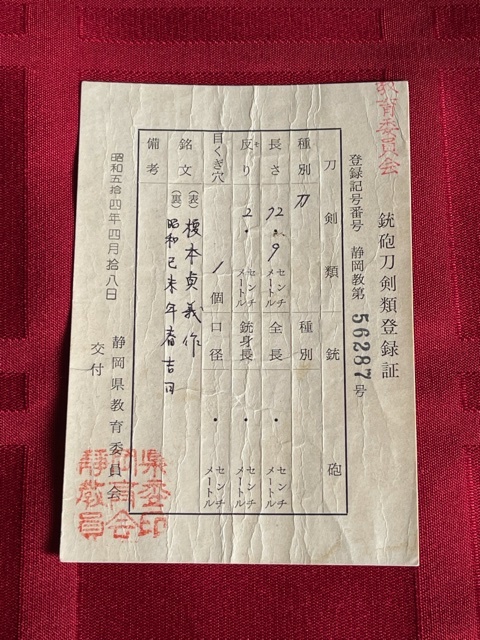 教育委員会
銃砲刀剣類登録証
登録記号番号 静岡教第 56287 号
刀剣類 銃砲
種別 刀 種別
長さ 72.9 センチメートル 全長 ・ センチメートル
反り 2. センチメートル 銃身長 ・ センチメートル
目くぎ穴 1 個 口径 ・ センチメートル
銘文 (表) 榎本貞義作
(裏) 昭和己未年春吉日
備考
昭和五拾四年四月拾八日
静岡県教育委員会
交付
静岡県教育委員会印